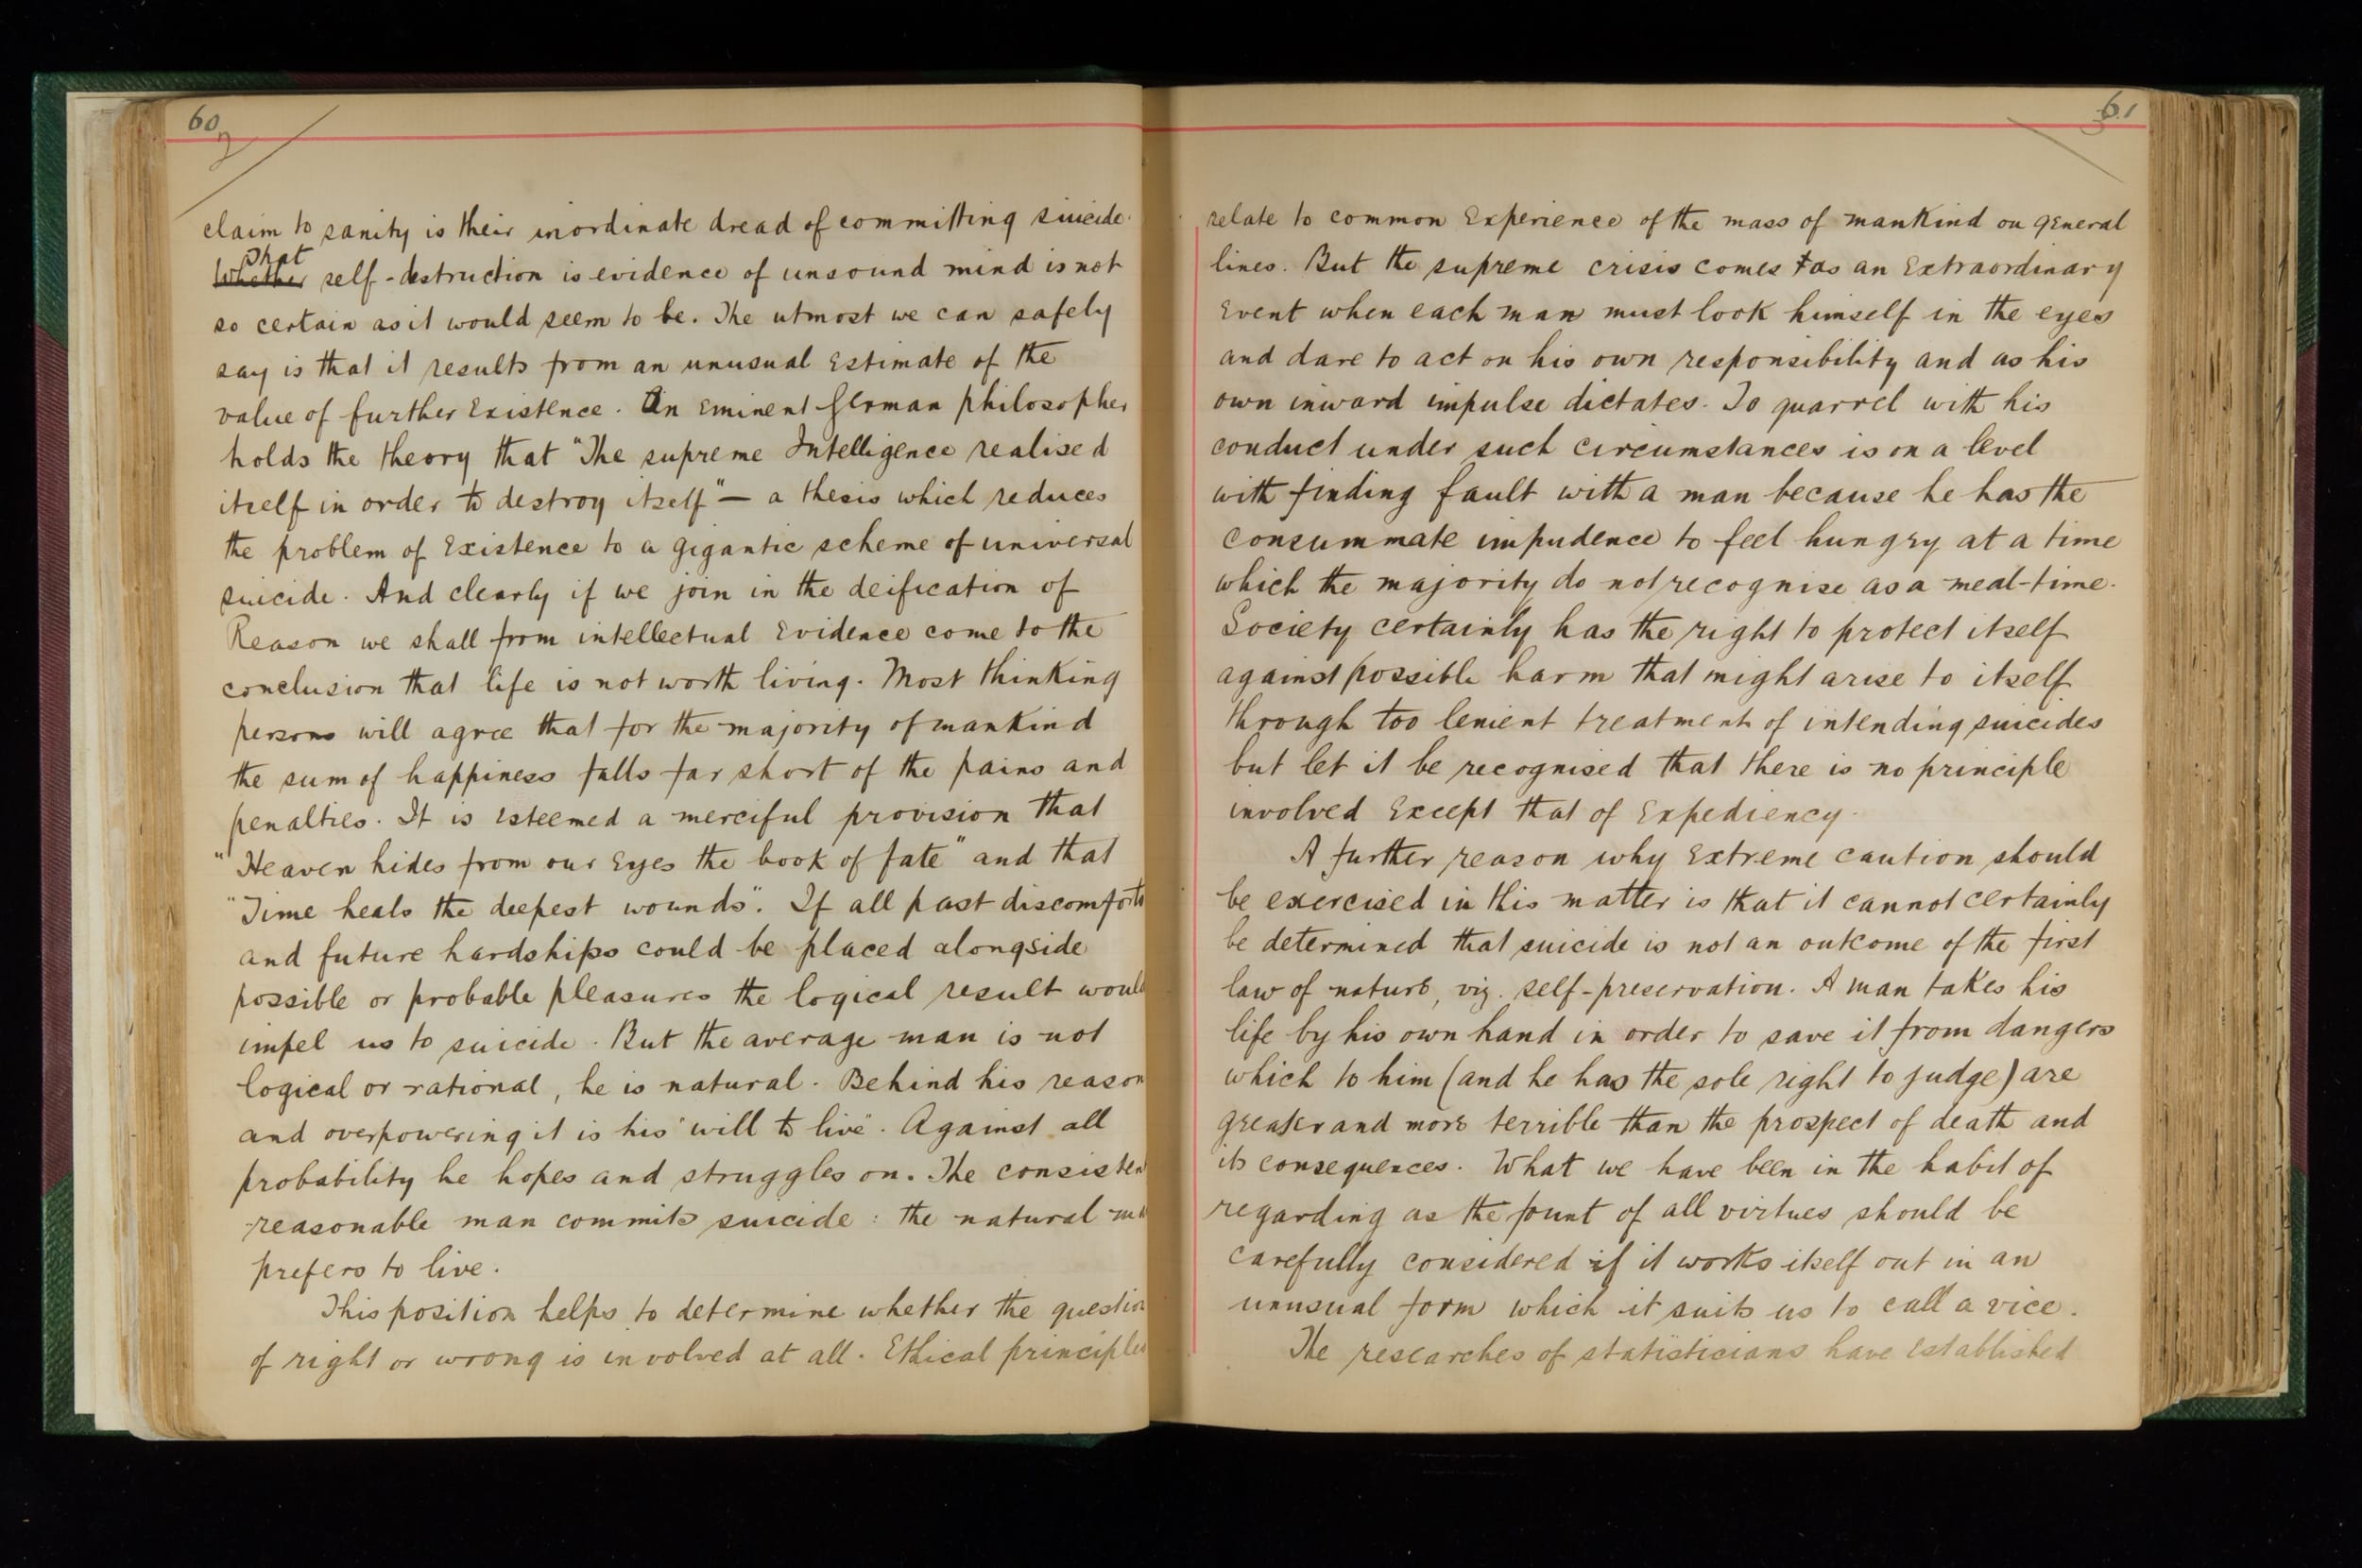 60
2
claim to sanity is their inordinate dread of committing suicide.
That
Whether self-destruction is evidence of unsound mind is not
so certain as it would seem to be. The utmost we can safely
say is that it results from an unusual Estimate of the
value of further Existence. An Eminent German philosopher
holds the theory that "The supreme Intelligence realised
itself in order to destroy itself" — a thesis which reduces
the problem of Existence to a gigantic scheme of universal
suicide. And clearly if we join in the deification of
Reason we shall from intellectual Evidence come to the
conclusion that life is not worth living. Most thinking
persons will agree that for the majority of mankind
the sum of happiness falls far short of the pains and
penalties. It is Esteemed a merciful provision that
"Heaven hides from our Eyes the book of fate" and that
"Time heals the deepest wounds". If all past discomforts
and future hardships could be placed alongside
possible or probable pleasures the logical result would
impel us to suicide. But the average man is not
logical or rational, he is natural. Behind his reason
and overpowering it is his "will to live". Against all
probability he hopes and struggles on. The consisten
reasonable man commits suicide: the natural ma
prefers to live.
This position helps to determine whether the question
of right or wrong is involved at all. Ethical principles
61
3
relate to common Experience of the mass of mankind on general
lines. But the supreme crisis comes as an Extraordinary
Event when each man must look himself in the eyes
and dare to act on his own responsibility and as his
own inward impulse dictates. To quarrel with his
conduct under such circumstances is on a level
with finding fault with a man because he has the
consummate impudence to feel hungry at a time
which the majority do not recognise as a meal-time.
Society certainly has the right to protect itself
against possible harm that might arise to itself
through too lenient treatment of intending suicides
but let it be recognised that there is no principle
involved Except that of Expediency.
A further reason why Extreme caution should
be exercised in this matter is that it cannot certainly
be determined that suicide is not an outcome of the first
law of nature, viz. self-preservation. A man takes his
life by his own hand in order to save it from dangers
which to him (and he has the sole right to judge) are
greater and more terrible than the prospect of death and
its consequences. What we have been in the habit of
regarding as the fount of all virtues should be
carefully considered if it works itself out in an
unusual form which it suits us to call a vice.
The researches of statisticians have Established